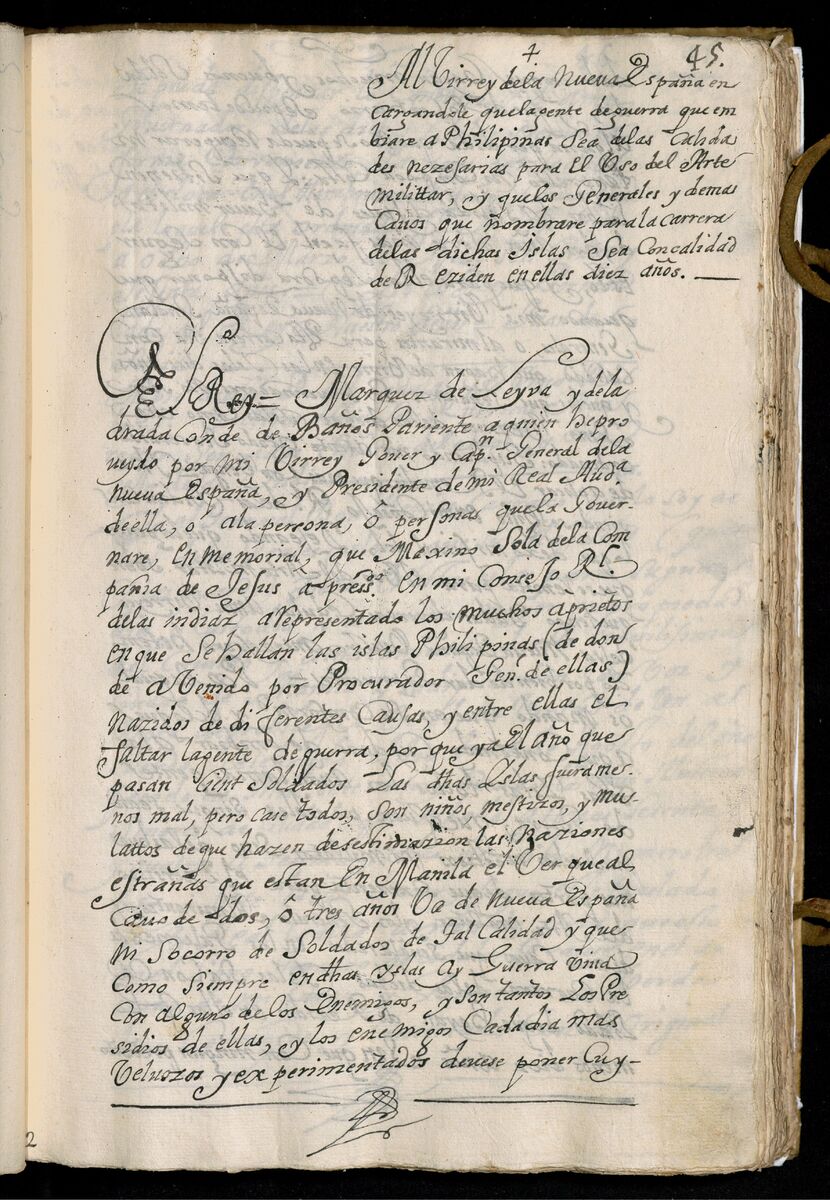 +
45.
Al Virrey dela Nueva España en
cargandole quela gente de guerra que em
biare a Philipinas Sea delas Calida
des nezesarias para el Uso del Arte
milittar, y quelos Generales y demas
Cavos que nombrare para la carrera
delas dichas Islas Sea Con calidad
de Reziden en ellas diez años.
El Rey = Marquez de Leyva y dela
drada Conde de Baños Pariente a quien hepro
veydo por mi Virrey Gover y Capn. General dela
nueva España, y Presidente de mi Real Auda.
de ella, ó ala persona, ó personas quela Gover-
nare, En memorial, que Maxino Sola dela Com
pañia de Jesus a presso. en mi Consejo Rl.
delas indiaz a representado los muchos aprietos
en que Se hallan las islas Philipinas (de don
de a Venido por Procurador Gen. de ellas)
Nazidos de diferentes Causas, y entre ellas el
faltar la gente de guerra, por que ya El año que
pasan Cient Soldados Las dhas Yslas fuera me-
nos mal, pero case todos, son niños, mestizos, y mu-
lattos de que hazen desestimazion las Naziones
estrañas que estan En Manila el Ver que al
Cavo de dos, ó tres años Va de nueva España
mi Socorro de Soldados de Tal Calidad y que
Como siempre en dhas yslas ay Guerra Viva
Con alguno delos Enemigos, y son tantos Los Pre
sidios de ellas, y los enemigos Cada dia mas
Velicozos y experimentados devese poner Cuy-
2